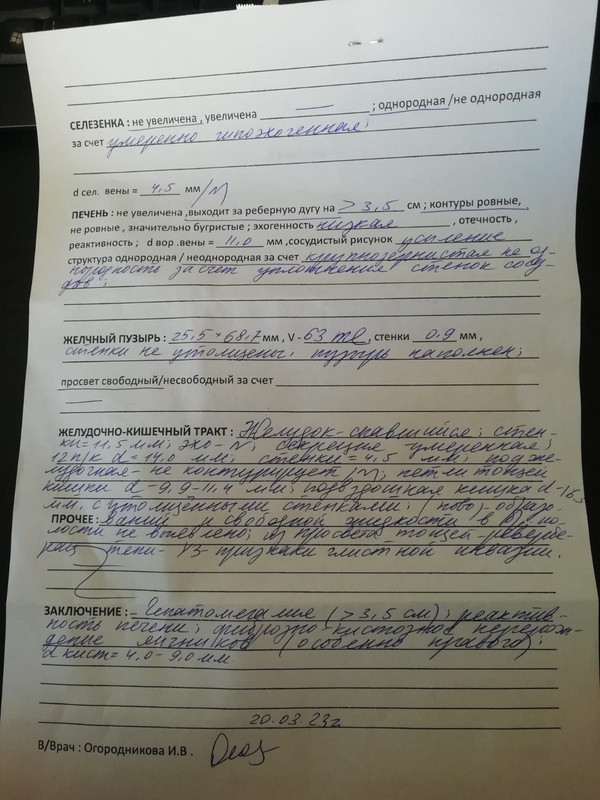 СЕЛЕЗЕНКА : не увеличена , увеличена — ; однородная /не однородная
за счет умеренно гипоэхогенная;
d сел. вены = 4,5 мм /N
ПЕЧЕНЬ : не увеличена ,выходит за реберную дугу на >3,5 см ; контуры ровные,
не ровные , значительно бугристые ; эхогенность низкая , отечность ,
реактивность ; d вор .вены = 11,0 мм ,сосудистый рисунок усиление
структура однородная / неоднородная за счет крупнозернистая не од-
нородность за счет уплотнения стенок сосу-
дов;
ЖЕЛЧНЫЙ ПУЗЫРЬ : 25,5 * 68,7 мм , V - 63 ml , стенки 0,9 мм ,
стенки не утолщены; пузырь наполнен;
просвет свободный/несвободный за счет
—
ЖЕЛУДОЧНО-КИШЕЧНЫЙ ТРАКТ : Желудок-спавшийся; стен-
ки=11,5 мм; эхо- N; секреция умеренная;
12п/к d=14,0 мм; стенки=4,5 мм; подже-
лудочная- не контурирует N; петли тощей
кишки d-9,9-11,4 мм; подвздошная кишка d-
мм. с утолщёнными стенками; (ново)-образо-
ПРОЧЕЕ : ваний и свободной жидкости в бр. по-
лости не выявлено; в просвете тощей-ревербе-
рац. тени- УЗ-признаки глистной инвазии.
ЗАКЛЮЧЕНИЕ : - Гепатомегалия (>3,5 см); реактив-
ность печени; фиброзно-кистозное перерож-
дение яичников (особенно правого);
d кист= 4,0-9,0 мм.
20.03.23г.
В/Врач : Огородникова И.В .